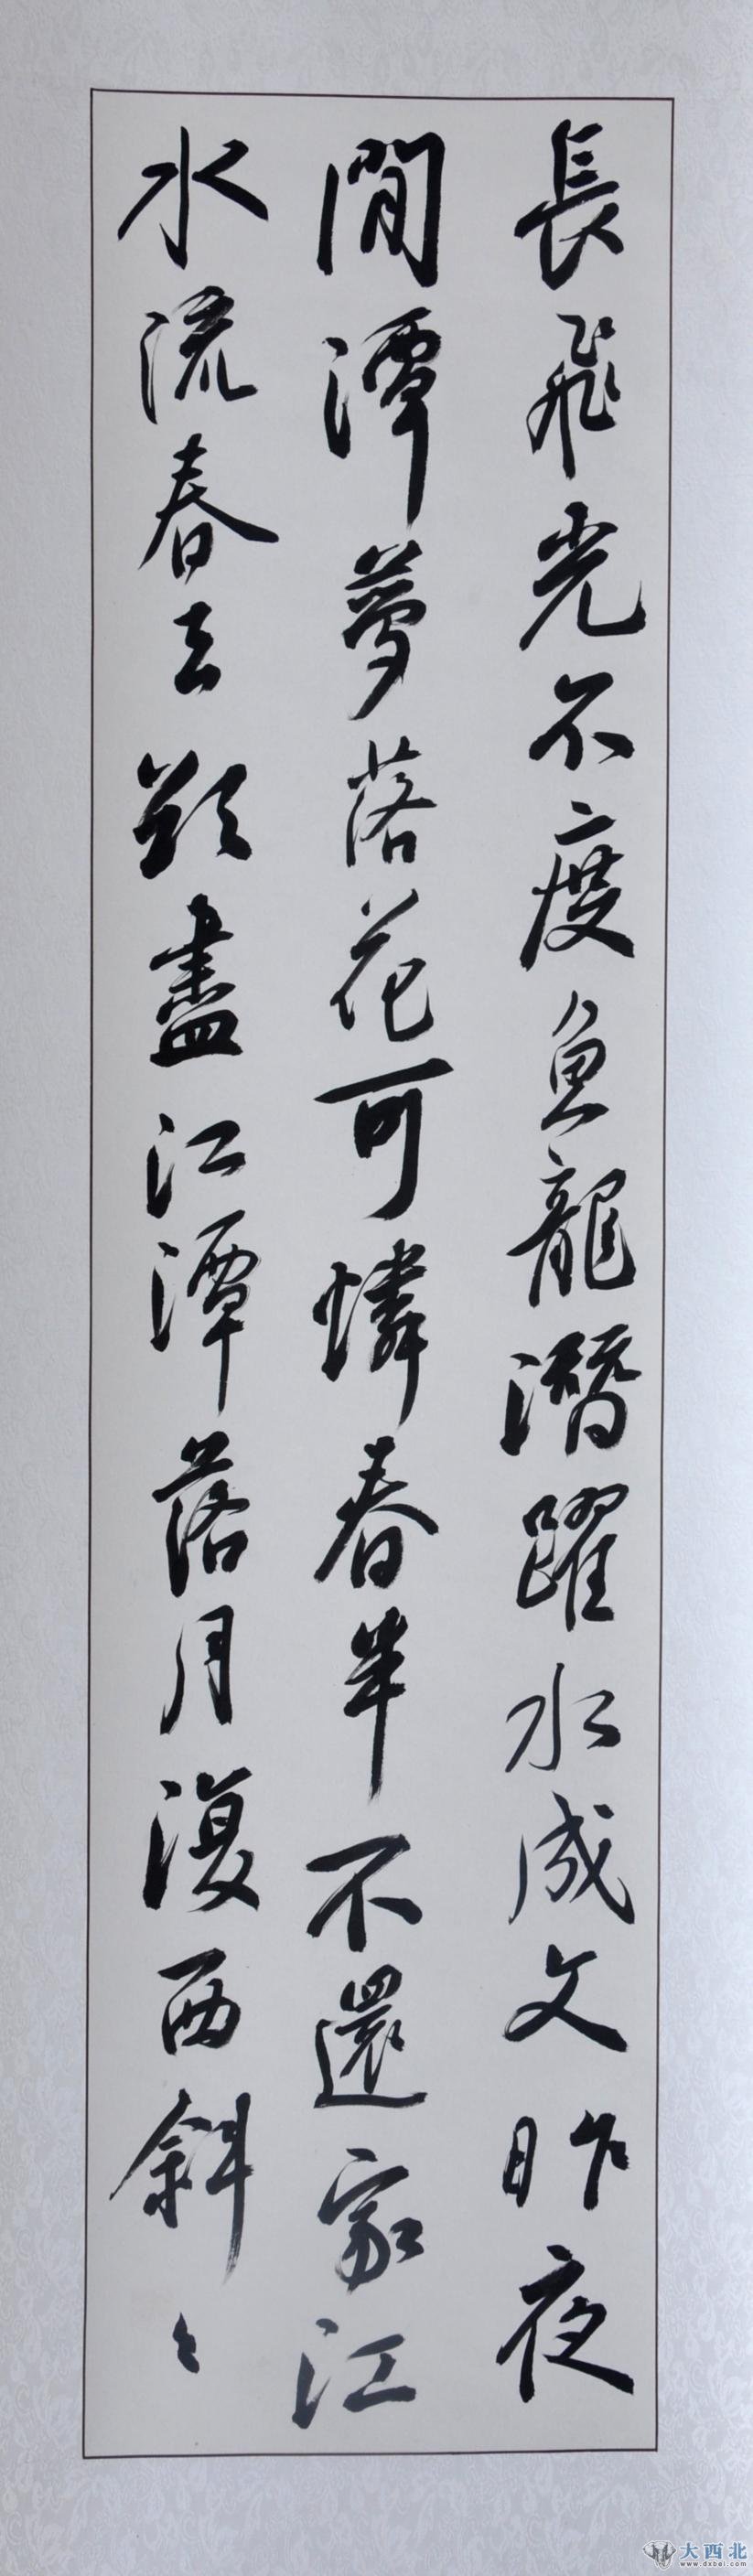 長飛光不度魚龍潛躍水成文昨夜
閒潭夢落花可憐春半不還家江
水流春去欲盡江潭落月復西斜〻
大西北
www.dxbei.com